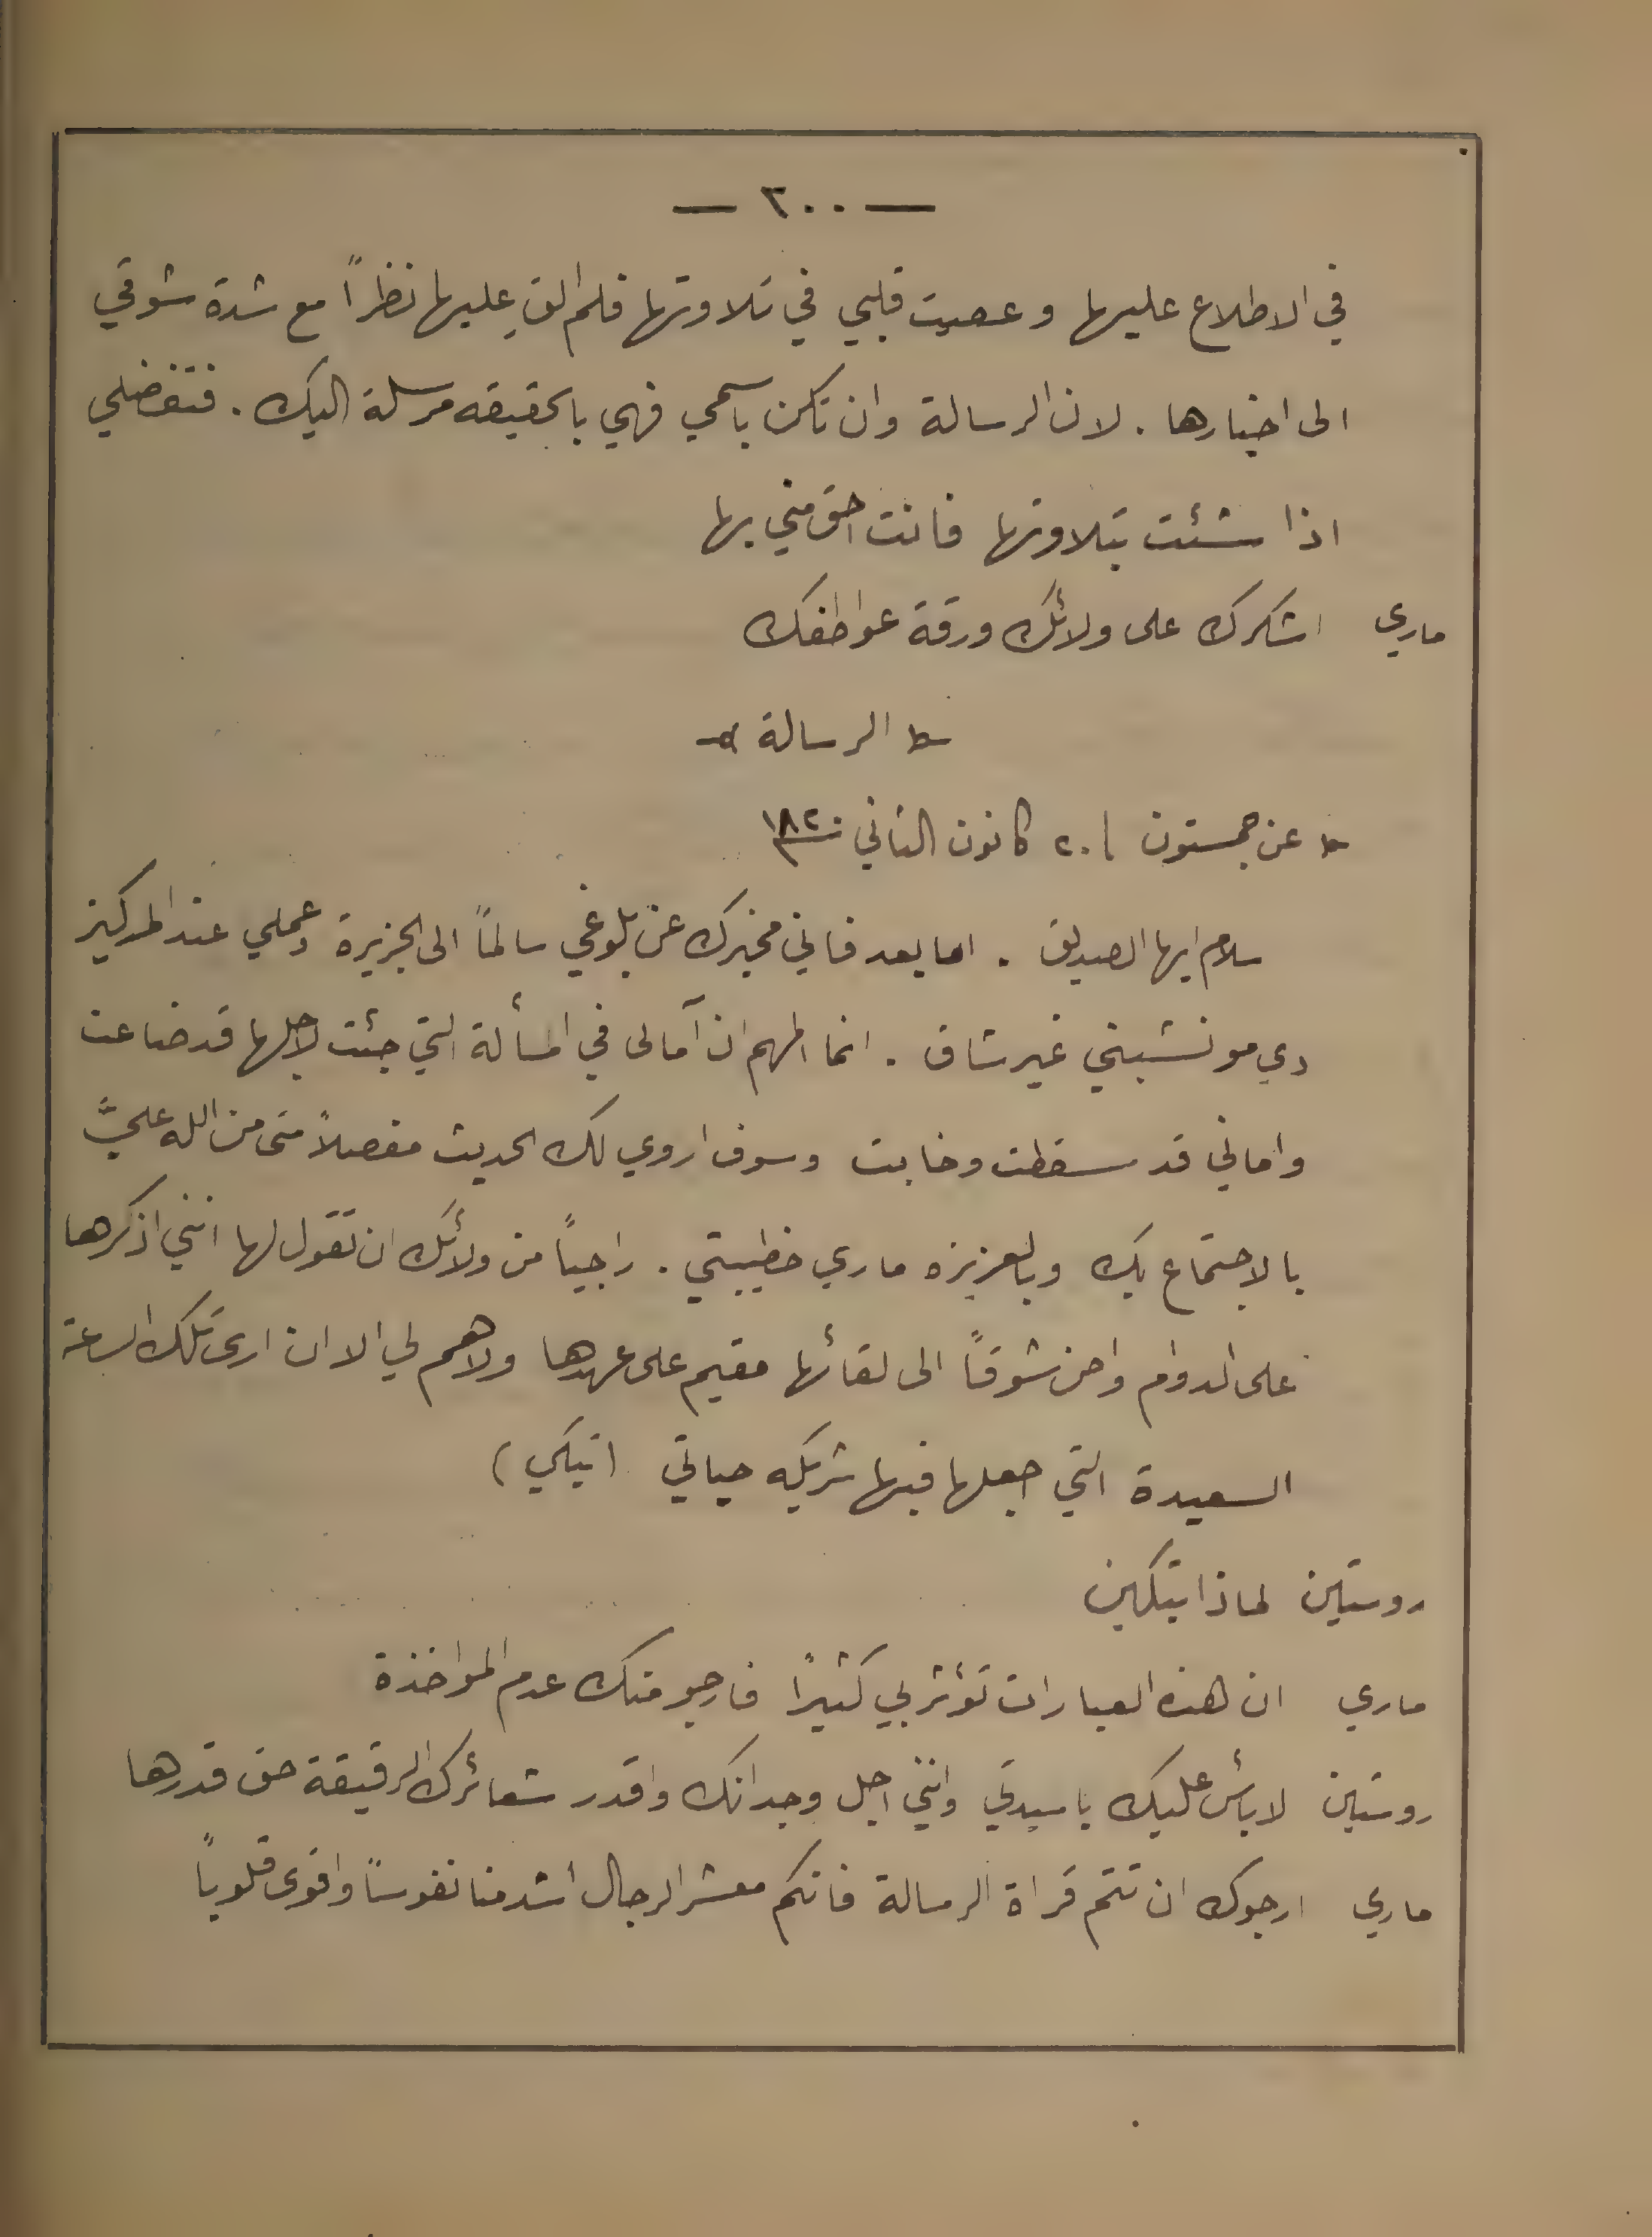 — ٢٠٠ —
في الاطلاع عليها وعصيت قلبي في تلاوتها فلم القِ عليها نظراً مع شدة شوقي
الى اخبارها . لان الرسالة وان تكن باسمي فهي بالحقيقه مرسلة اليك . فتفضلي
اذا شئت بتلاوتها فانت احق مني بها
ماري اشكرك على ولائك ورقة عواطفك
الرسالة
عن جمستون ٢٠ كانون الثاني سنة ١٨٢٠
سلام ايها الصديق . اما بعد فاني مخبرك عن بلوغي سالماً الى الجزيرة وعملي عند المركيز
دي مونتسبني غير شاق . انما المهم ان آمالي في المسألة التي جئت لاجلها قد ضاعت
واماني قد سقطت وخابت وسوف اروي لك الحديث مفصلاً متى من الله عليَّ
بالاجتماع بك وبالعزيزه ماري خطيبتي . راجياً من ولائك ان تقول لها انني اذكرها
على الدوام واحن شوقاً الى لقائها مقيم على عهدها ولا هم لي الا ان ارى تلك الساعة
السعيدة التي اجعلها فيها شريكه حياتي (تبكي)
روستين لماذا تبكين
ماري ان هذه العبارات تؤثر بي كثيراً فارجو منك عدم المواخذة
روستين لا بأس عليك يا سيدتي وانني اجل وجدانك واقدر شعائرك الرقيقة حق قدرها
ماري ارجوك ان تتم قراة الرسالة فانكم معشر الرجال أشد منا نفوساً واقوى قلوباً